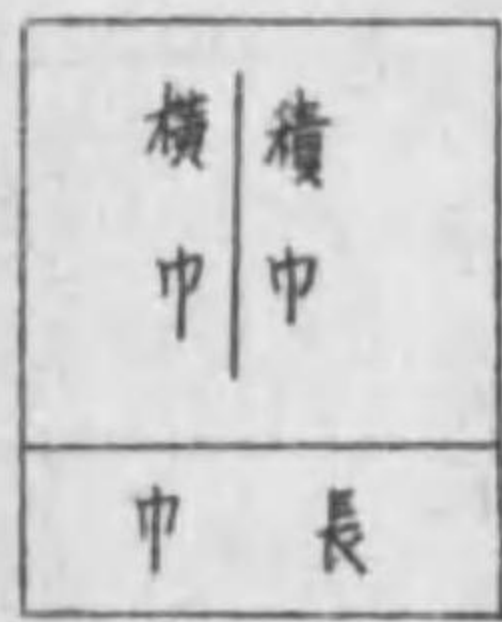 積巾
横巾
長巾